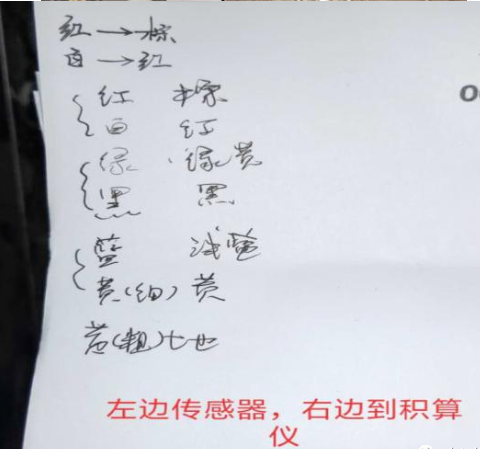 红→棕
白→红
红 棕
白 红
绿 绿黄
黑 黑
蓝 浅蓝
黄(细) 黄
黄(粗)
左边传感器，右边到积算
仪